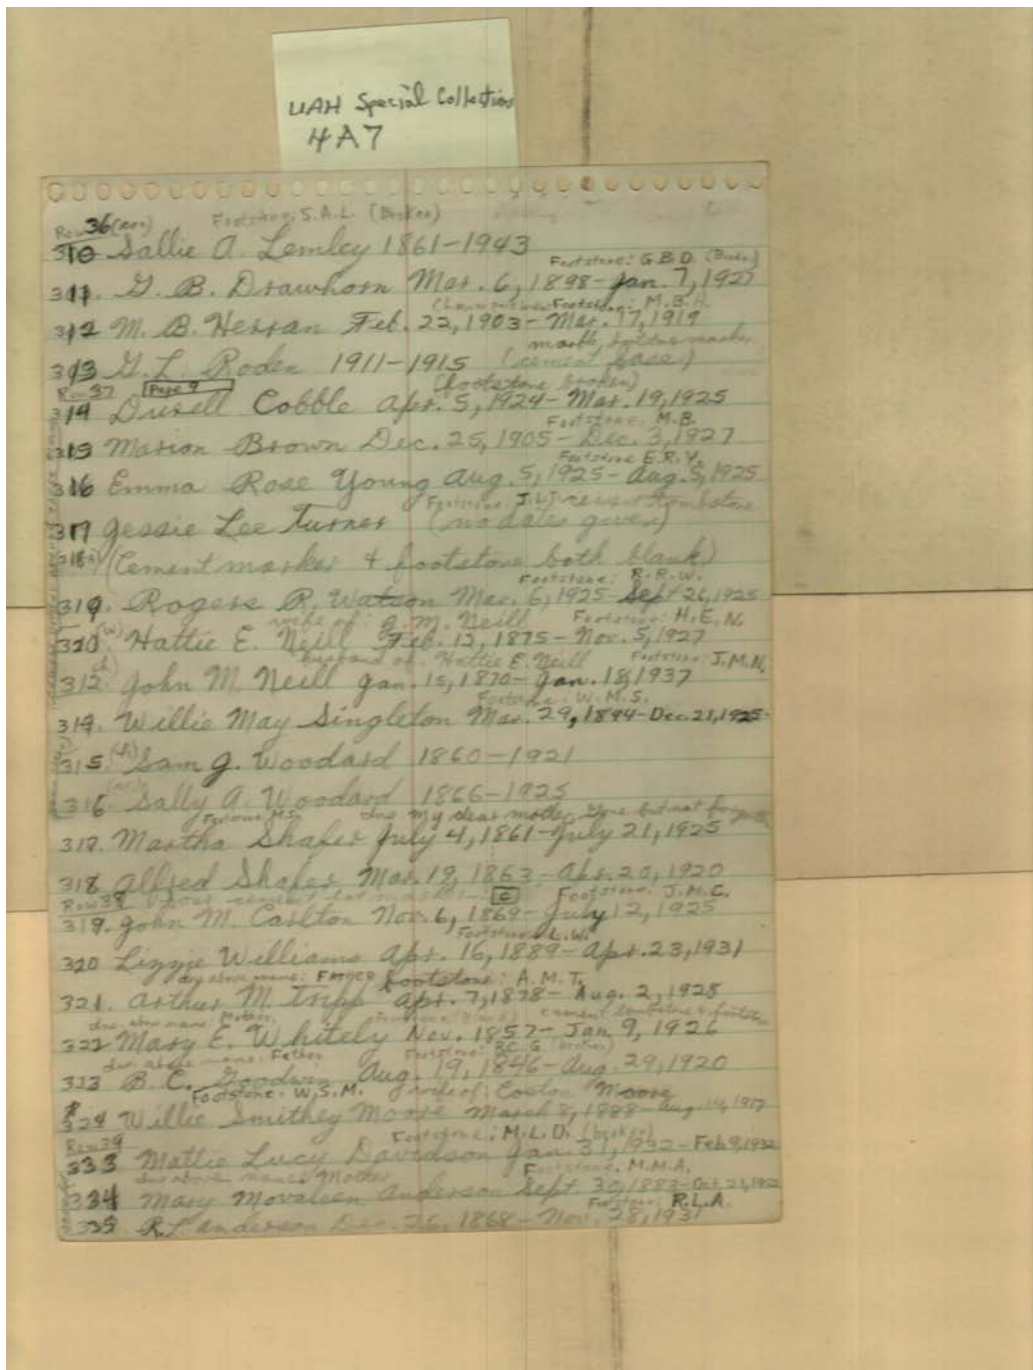 UAH Special Collections
4A7
Row 36 Footstone: S.A.L. (Broken)
310 Sallie A. Lemley 1861-1943
Footstone: G.B.D. (Broken)
311. G. B. Drawhorn Mar. 6, 1898-Jan. 7, 1927
Footstone: M.B.H.
312 M. B. Herran Feb. 22, 1903-Mar. 17, 1919
marble
313 G. L. Roden 1911-1915 (cement base)
Row 37 Page 9 (footstone broken)
314 Durell Cobble Apr. 5, 1924-Mar. 19, 1925
Footstone: M.B.
315 Marion Brown Dec. 25, 1905-Dec. 3, 1927
Footstone E.R.Y.
316 Emma Rose Young Aug. 5, 1925-Aug. 5, 1925
Footstone: J.L. tombstone
317 Jessie Lee Turner (no dates given)
318 (Cement marker & footstone both blank)
Footstone: R.R.W.
319. Rogers R. Watson Mar. 6, 1925-Sept 26, 1925
wife of: J. M. Neill Footstone: H.E.N.
320 (W) Hattie E. Neill Feb. 12, 1875-Nov. 5, 1927
husband of: Hattie E. Neill Footstone: J.M.N.
312. (h) John M. Neill Jan. 15, 1870-Jan. 18, 1937
Footstone: W.M.S.
314. Willie May Singleton Mar. 29, 1894-Dec. 21, 1925
315. (h) Sam J. Woodard 1860-1921
316 Sally A. Woodard 1866-1925
Footstone: M.S. Ins my dear mother Gone but not forgotten
317. Martha Shafer July 4, 1861-July 21, 1925
318 Alfred Shafer Mar. 19, 1863-Apr. 20, 1920
Row 38 C Footstone: J.M.C.
319. John M. Carlton Nov. 6, 1869-July 12, 1925
Footstone L.W.
320 Lizzie Williams Apr. 16, 1889-Apr. 23, 1931
above name: Father Footstone: A.M.T.
321. Arthur M. Tripp Apr. 7, 1878-Aug. 2, 1928
ins. above name: Mother cement tombstone & footstone
322 Mary E. Whitely Nov. 1857-Jan. 9, 1926
ins. above name: Father Footstone: B.C.G. (broken)
323 B. C. Goodwin Aug. 19, 1846-Aug. 29, 1920
Footstone: W.S.M. wife of: Moore
324 Willie Smithey Moore March 8, 1888-Aug. 14, 1917
Row 39 Footstone: M.L.D. (broken)
333 Mattie Lucy Davidson Jan. 31, 1932-Feb 9, 1932
ins above name: Mother Footstone: M.M.A.
334 Mary Anderson Sept 30, 1883-Oct.
Footstone: R.L.A.
335 R.L. Anderson Dec. 26, 1868-Nov. 28, 1931